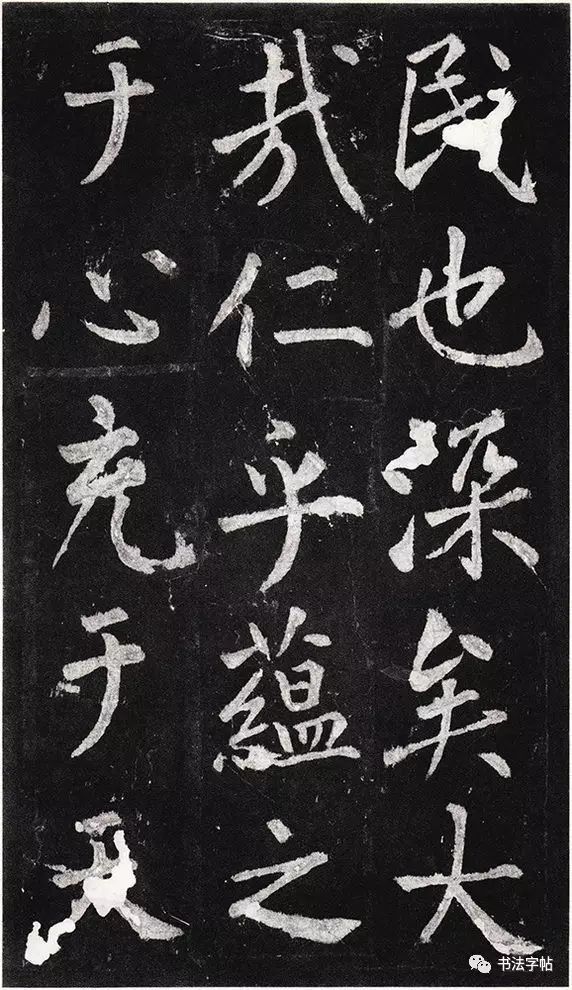 民也深矣大
哉仁乎蘊之
于心充于天
书法字帖